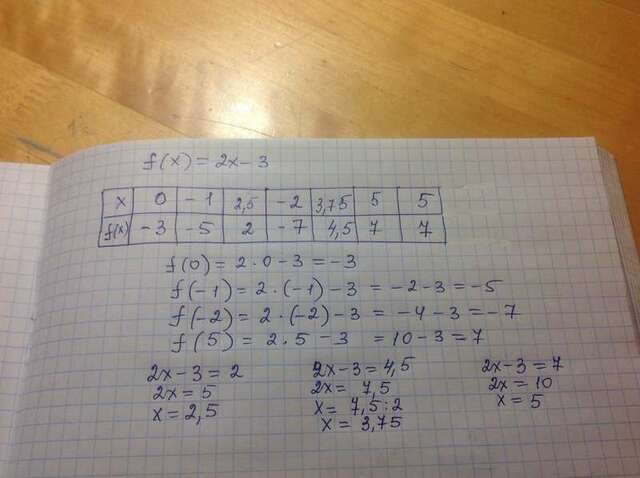 f(x) = 2x - 3
x 0 -1 2,5 -2 3,75 5 5
f(x) -3 -5 2 -7 4,5 7 7
f(0) = 2·0-3 = -3
f(-1) = 2·(-1)-3 = -2-3 = -5
f(-2) = 2·(-2)-3 = -4-3 = -7
f(5) = 2·5-3 = 10-3 = 7
2x-3 = 2
2x = 5
x = 2,5
2x-3 = 4,5
2x = 7,5
x = 7,5:2
x = 3,75
2x-3 = 7
2x = 10
x = 5